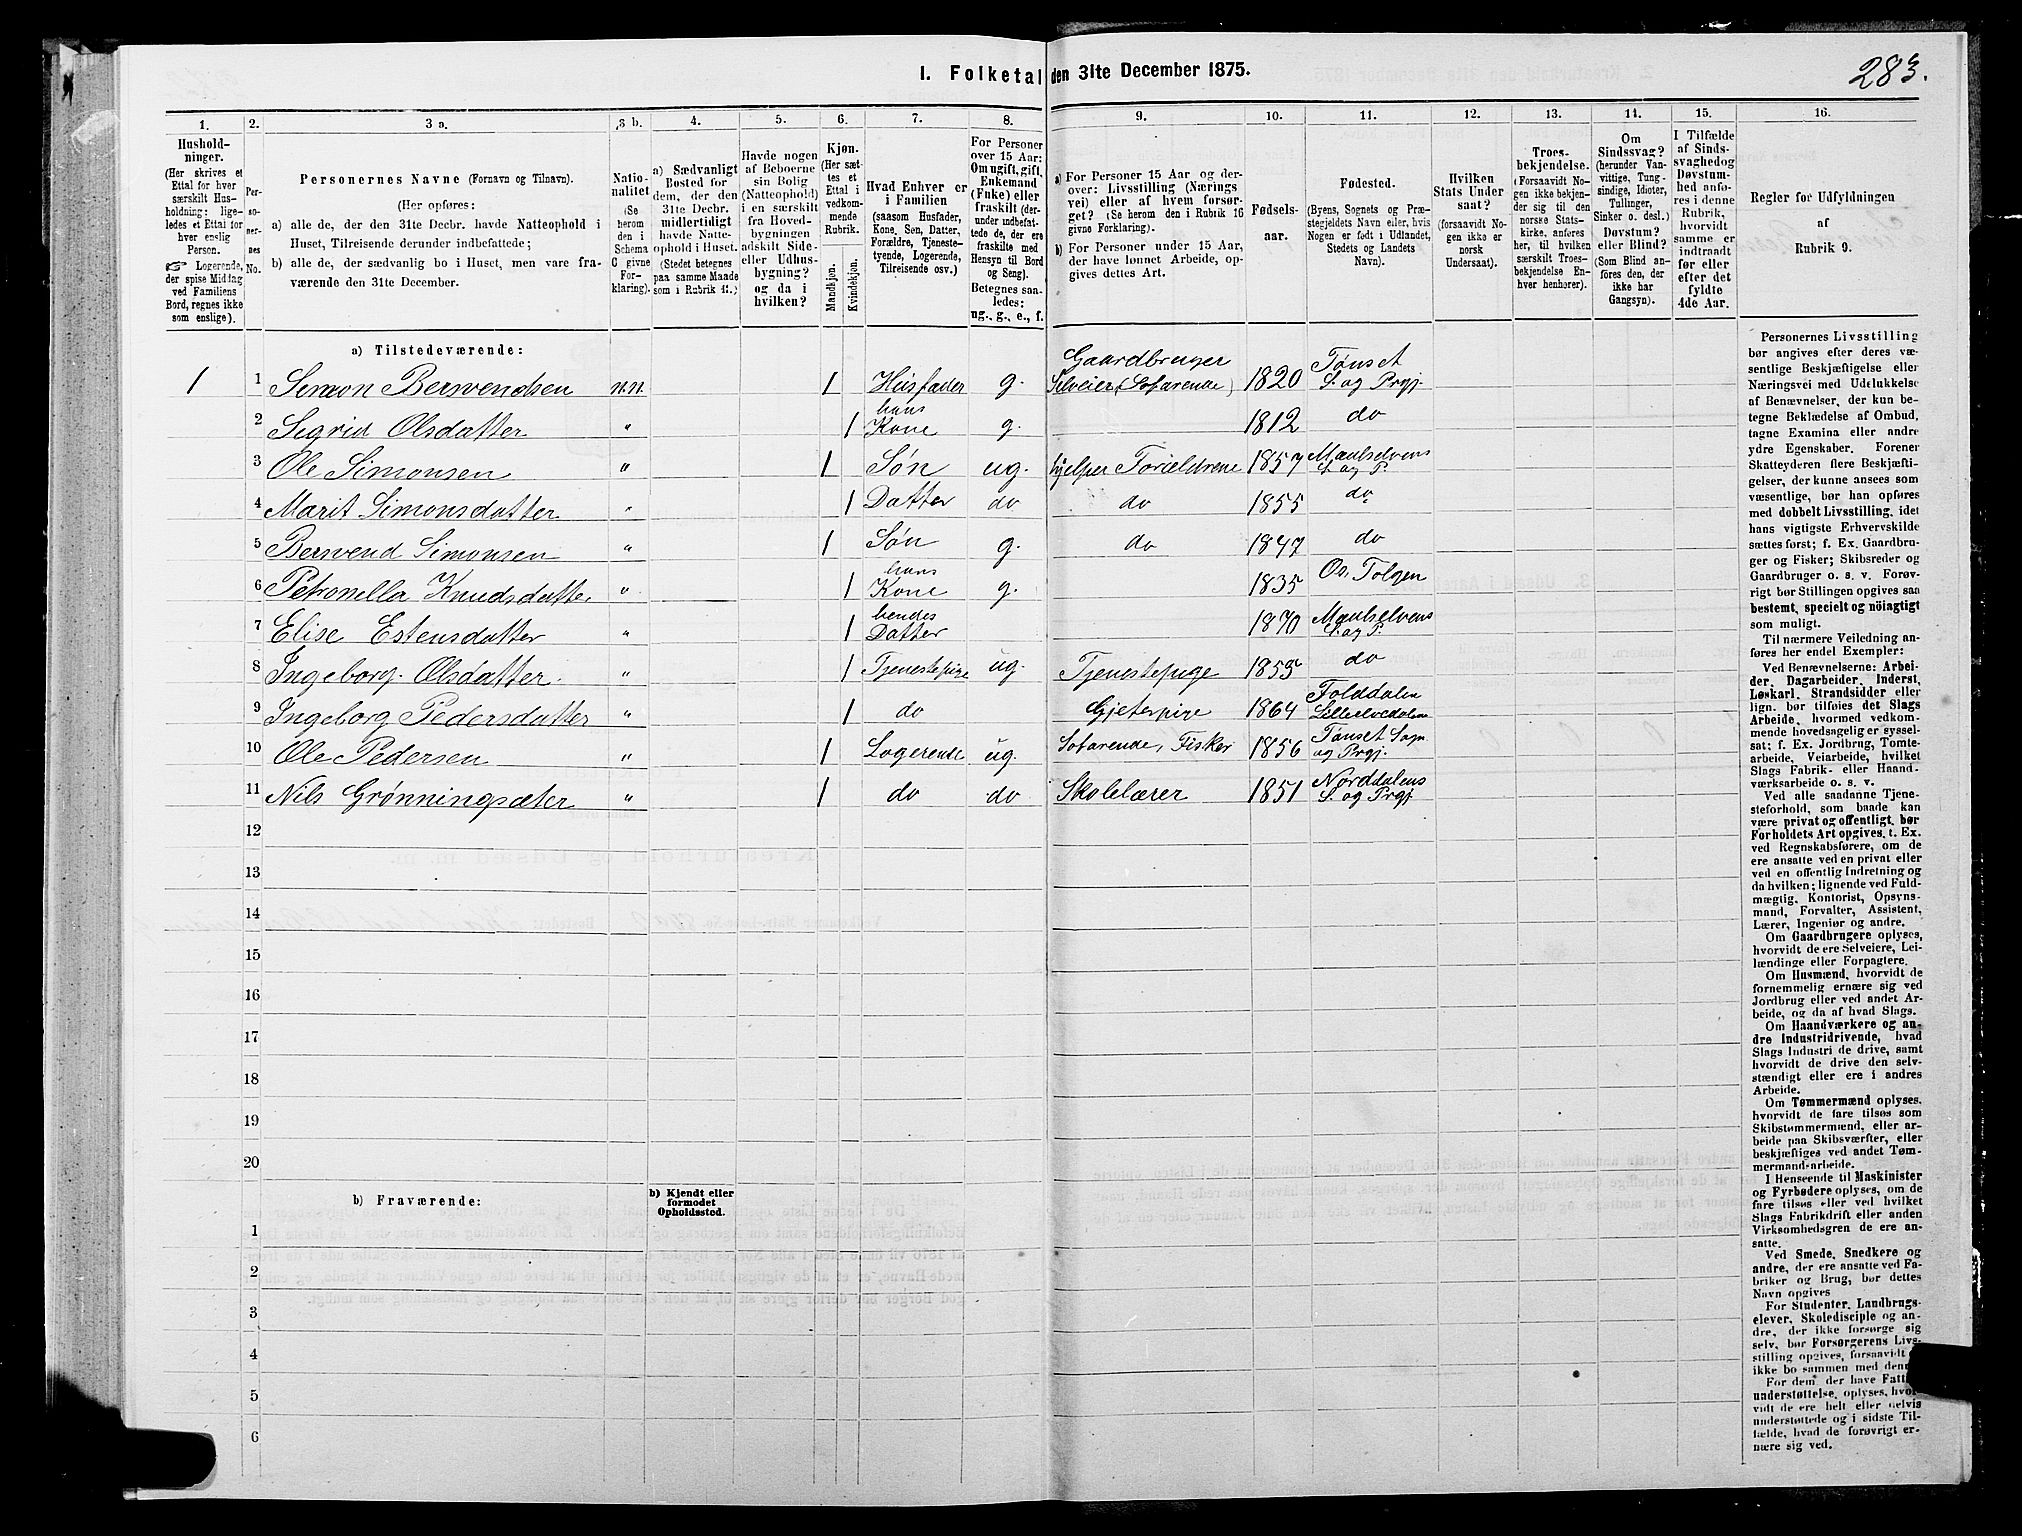 I. Folketal den 31te December 1875.
283.
1.
Hushold-
ninger.
(Her skrives et
Ettal for hver
særskilt Hus-
holdning; lige-
ledes et Ettal
for hver enslig
Person.
☞ Logerende,
der spise Middag
ved Familiens
Bord, regnes ikke
som enslige).
2.
Per-
so-
ner-
nes
No.
3 a.
Personernes Navne (Fornavn og Tilnavn).
(Her opføres:
a) alle de, der den 31te Decbr. havde Natteophold i
Huset, Tilreisende derunder indbefattede;
b) alle de, der sædvanlig bo i Huset, men vare fra-
værende den 31te December.
3 b.
Natio-
nalitet
(Se
herom
den i
Schema
C givne
For-
klaring).
4.
a) Sædvanligt
Bosted for
dem, der den
31te Decbr.
midlertidigt
havde Natte-
ophold i Huset.
(Stedet betegnes
paa samme Maade
som i Rubrik 11.)
5.
Havde nogen
af Beboerne
sin Bolig
(Natteophold)
i en særskilt
fra Hoved-
bygningen
adskilt Side-
eller Udhus-
bygning?
og da i
hvilken?
6.
Kjøn.
(Her sæt-
tes et
Ettal i
vedkom-
mende
Rubrik.
Mandkjøn.
Kvindekjøn.
7.
Hvad Enhver er
i Familien
(saasom Husfader,
Kone, Søn, Datter,
Forældre, Tjeneste-
tyende, Logerende,
Tilreisende osv.)
8.
For Personer
over 15 Aar:
Om ugift, gift,
Enkemand
(Enke) eller
fraskilt (der-
under indbefat-
tede de, der ere
fraskilte med
Hensyn til Bord
og Seng).
Betegnes saa-
ledes:
ug., g., e., f.
9.
a) For Personer 15 Aar og der-
over: Livsstilling (Nærings
vei) eller af hvem forsør-
get? (Se herom den i Rubrik 16
givne Forklaring).
b) For Personer under 15 Aar,
der have lønnet Arbeide, op-
gives dettes Art.
10.
Fødsels-
aar.
11.
Fødested.
(Byens, Sognets og Præ-
stegjeldets Navn eller, hvis
Nogen er født i Udlandet,
Stedets og Landets
Navn).
12.
Hvilken
Stats Under
saat?
(forsaavidt No-
gen ikke er
norsk
Undersaat).
13.
Troes-
bekjendelse.
(Forsaavidt No-
gen ikke bekjen-
der sig til den
norske Stats-
kirke, anføres
her, til hvilken
særskilt Troes-
bekjendelse En-
hver henhører).
14.
Om
Sindssvag?
(herunder Van-
vittige, Tung-
sindige, Idioter,
Tullinger,
Sinker o. desl.)
Døvstum?
eller Blind?
(Som Blind an-
føres den, der
ikke har
Gangsyn).
15.
I Tilfælde
af Sinds-
svaghedog
Døvstum-
hed anfø-
res i denne
Rubrik,
hvorvidt
samme er
indtraadt
før eller
efter det
fyldte
4de Aar.
16.
Regler for Udfyldningen
af
Rubrik 9.
a) Tilstedeværende:
1 1 Simon Bersvendsen n.n. 1 Husfader g. Gaardbruger Selveier (Sofarende) 1820 Tønset S. og Prgj.
2 Sigrid Olsdatter " 1 hans Kone g. 1812 do
3 Ole Simonsen " 1 Søn ug. hjelper Forældrene 1857 Maalselvens S. og P.
4 Marit Simonsdatter " 1 Datter do do 1855 do
5 Bersvend Simonsen " 1 Søn g. do 1847 do
6 Petronella Knudsdatter " 1 hans Kone g. 1835 Os. Tolgen
7 Elise Estensdatter " 1 hendes Datter 1870 Maalselvens S. og P.
8 Ingeborg Olsdatter " 1 Tjenestepige ug. Tjenestepige 1855 do
9 Ingeborg Pedersdatter " 1 do Gjeterpige 1864 Folddalen Lilleelvedalen
10 Ole Pedersen " 1 Logerende ug. Sofarende, Fisker 1856 Tønset Sogn og Prgj.
11 Nils Grønningsæter " 1 do do Skolelærer 1851 Norddalens S. og Prgj
12
13
14
15
16
17
18
19
20
b) Fraværende:
b) Kjendt eller
formodet
Opholdssted.
1
2
3
4
5
6
Personernes Livsstilling
bør angives efter deres væ-
sentlige Beskjæftigelse eller
Næringsvei med Udelukkelse
af Benævnelser, der kun be-
tegne Beklædelse af Ombud,
tagne Examina eller andre
ydre Egenskaber. Forener
Skatteyderen flere Beskjæfti-
gelser, der kunne ansees som
væsentlige, bør han opføres
med dobbelt Livsstilling, idet
hans vigtigste Erhvervskilde
sættes først; f. Ex. Gaardbru-
ger og Fisker; Skibsreder og
Gaardbruger o. s. v. Forøv-
rigt bør Stillingen opgives saa
bestemt, specielt og nöiagtigt
som muligt.
Til nærmere Veiledning an-
føres her endel Exempler:
Ved Benævnelserne: Arbei-
der, Dagarbeider, Inderst,
Løskarl, Strandsidder eller
lign. bør tilføies det Slags
Arbeide, hvormed vedkom-
mende hovedsagelig er syssel-
sat; f. Ex. Jordbrug, Tomte-
arbeide, Veiarbeide, hvilket
Slags Fabrik- eller Haand-
værksarbeide o. s. v.
Ved alle saadanne Tjene-
steforhold, som baade kan
være privat og offentligt, bør
Forholdets Art opgives, t. Ex.
ved Regnskabsførere, om de
ere ansatte ved en privat eller
ved en offentlig Indretning og
da hvilken; lignende ved Fuld-
mægtig, Kontorist, Opsyns-
mand, Forvalter, Assistent,
Lærer, Ingeniør og andre.
Om Gaardbrugere oplyses,
hvorvidt de ere Selveiere, Lei-
lændinge eller Forpagtere.
Om Husmænd, hvorvidt de
fornemmelig ernære sig ved
Jordbrug eller ved andet Ar-
beide, og da af hvad Slags.
Om Haandværkere og an-
dre Industridrivende, hvad
Slags Industri de drive, samt
hvorvidt de drive den selv-
stændigt eller ere i andres
Arbeide.
Om Tømmermænd oplyses,
hvorvidt de fare tilsøs som
Skibstømmermænd, eller ar-
beide paa Skibsværfter, eller
beskjæftiges ved andet Tøm-
mermand-arbeide.
I Henseende til Maskinister
og Fyrbødere oplyses, om de
fare tilsøs eller ved hvilket
Slags Fabrikdrift eller anden
Virksomhedsgren de ere an-
satte.
Ved Smede, Snedkere og
andre, der ere ansatte ved Fa-
briker og Brug, bør dettes
Navn opgives
For Studenter, Landbrugs-
elever, Skoledisciple og an-
dre, der ikke forsørge sig
selv, bør Forsørgerens Livs-
stilling opgives, forsaavidt
ikke bo sammen med
For dem, der have
understøttelse, oplyses,
vidt de ere helt eller delvis
understøttede og i sidste Til-
fælde, hvad de forøvrigt er-
nære sig ved.